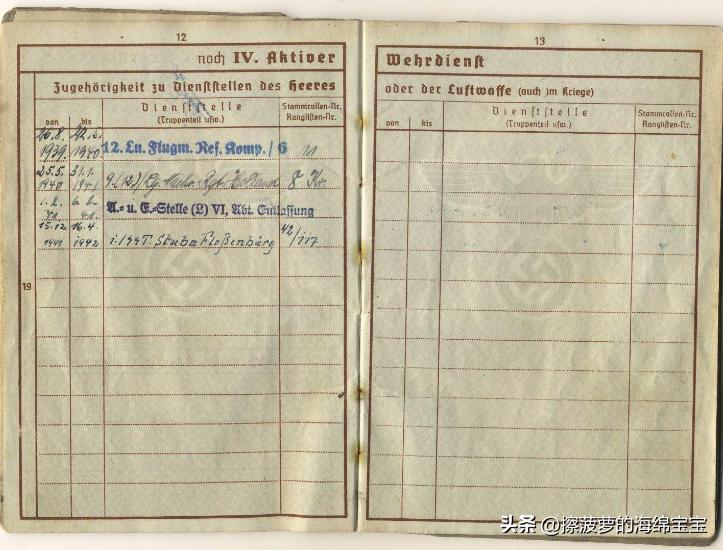 12
noch IV. Aktiver
Zugehörigkeit zu Dienststellen des Heeres
von
bis
Dienststelle
(Truppenteil usw.)
Stammrollen-Nr.
Ranglisten-Nr.
26.8.
1939.
1940
12. Ln. Flugm. Res. Komp. / 6
25.5.
31.1.
1940
1941
Holland
1.2.
A.- u. E.-Stelle (L) VI, Abt. Entlassung
15.12.
16.4.
1941
1942
Floßenbürg
42/117
19
13
Wehrdienst
oder der Luftwaffe (auch im Kriege)
von
bis
Dienststelle
(Truppenteil usw.)
Stammrollen-Nr.
Ranglisten-Nr.
头条 @擦菠萝的海绵宝宝